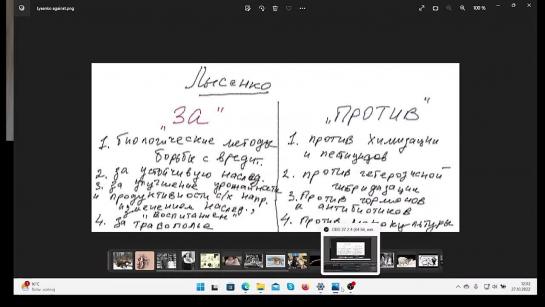 Lysenko against.png
100 %
Лысенко
"ЗА"
1. биологические методы
борьбы с вредит.
2. за устойчивую наслед.
3. за улучшение урожайности
и продуктивности с/х напр.
изменением наслед.,
"воспитанием"
4. за травополье
"ПРОТИВ"
1. против химизации
и пестицидов
2. против гетерозисной
гибридизации
3. Против гормонов
и антибиотиков
4. Против монокультуры
12:02
27.10.2022